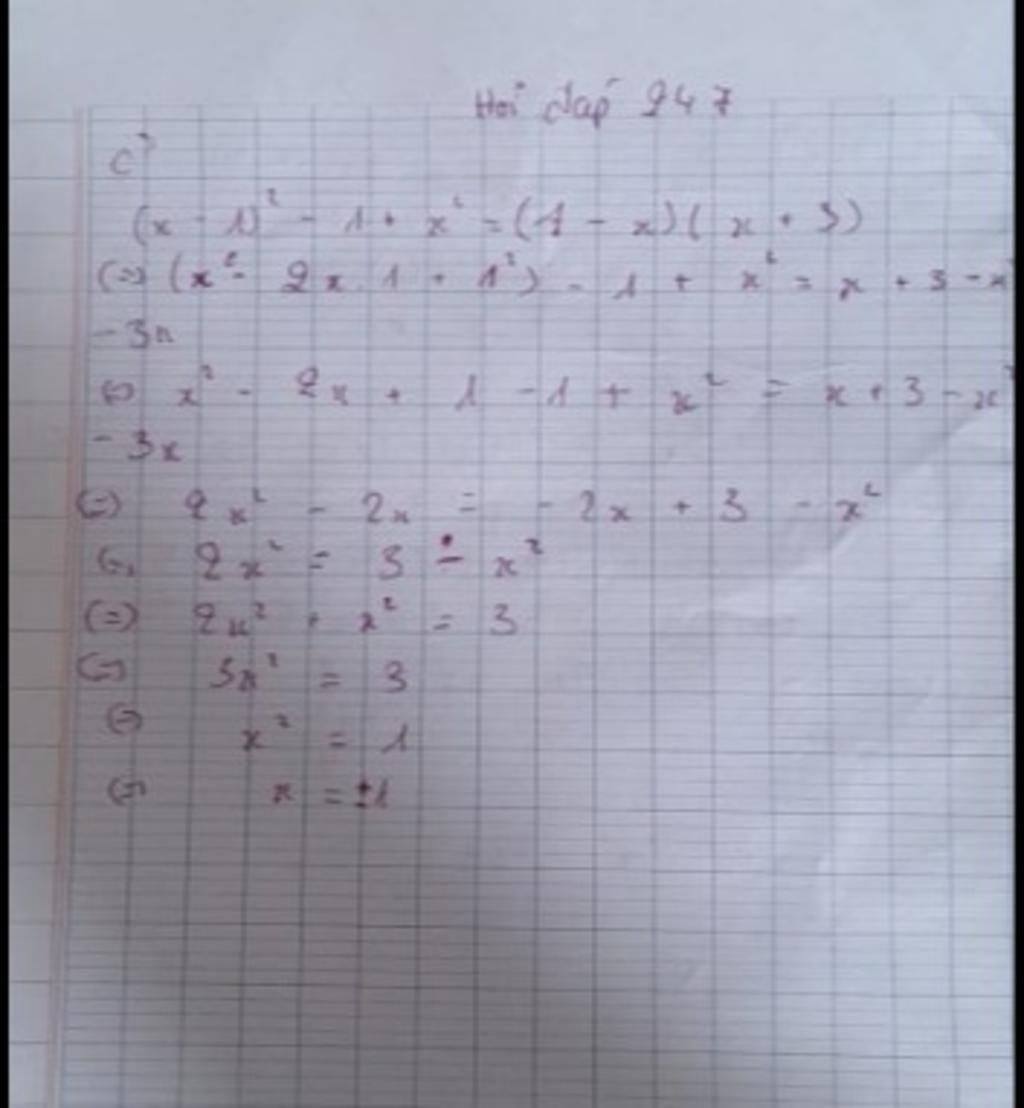 Hỏi đáp 247
c)
(x - 1)² - 1 + x² = (1 - x)(x + 3)
(=) (x² - 2x.1 + 1²) - 1 + x² = x + 3 - x²
- 3x
(=) x² - 2x + 1 - 1 + x² = x + 3 - x²
- 3x
(=) 2x² - 2x = - 2x + 3 - x²
(=) 2x² = 3 - x²
(=) 2x² + x² = 3
(=) 3x² = 3
(=) x² = 1
(=) x = ±1